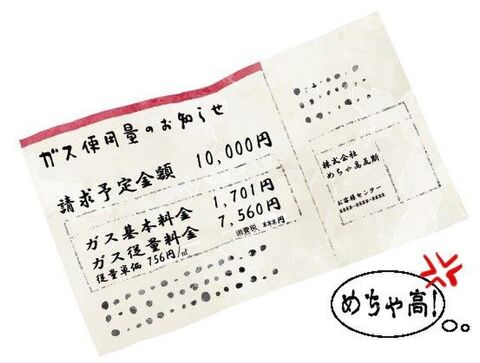 ガス使用量のお知らせ
請求予定金額 10,000円
ガス基本料金 1,701円
ガス従量料金 7,560円
従量単価 756円/㎥ 消費税 ***円
株式会社
めちゃ高瓦斯
お客様センター
****-****-****
めちゃ高!